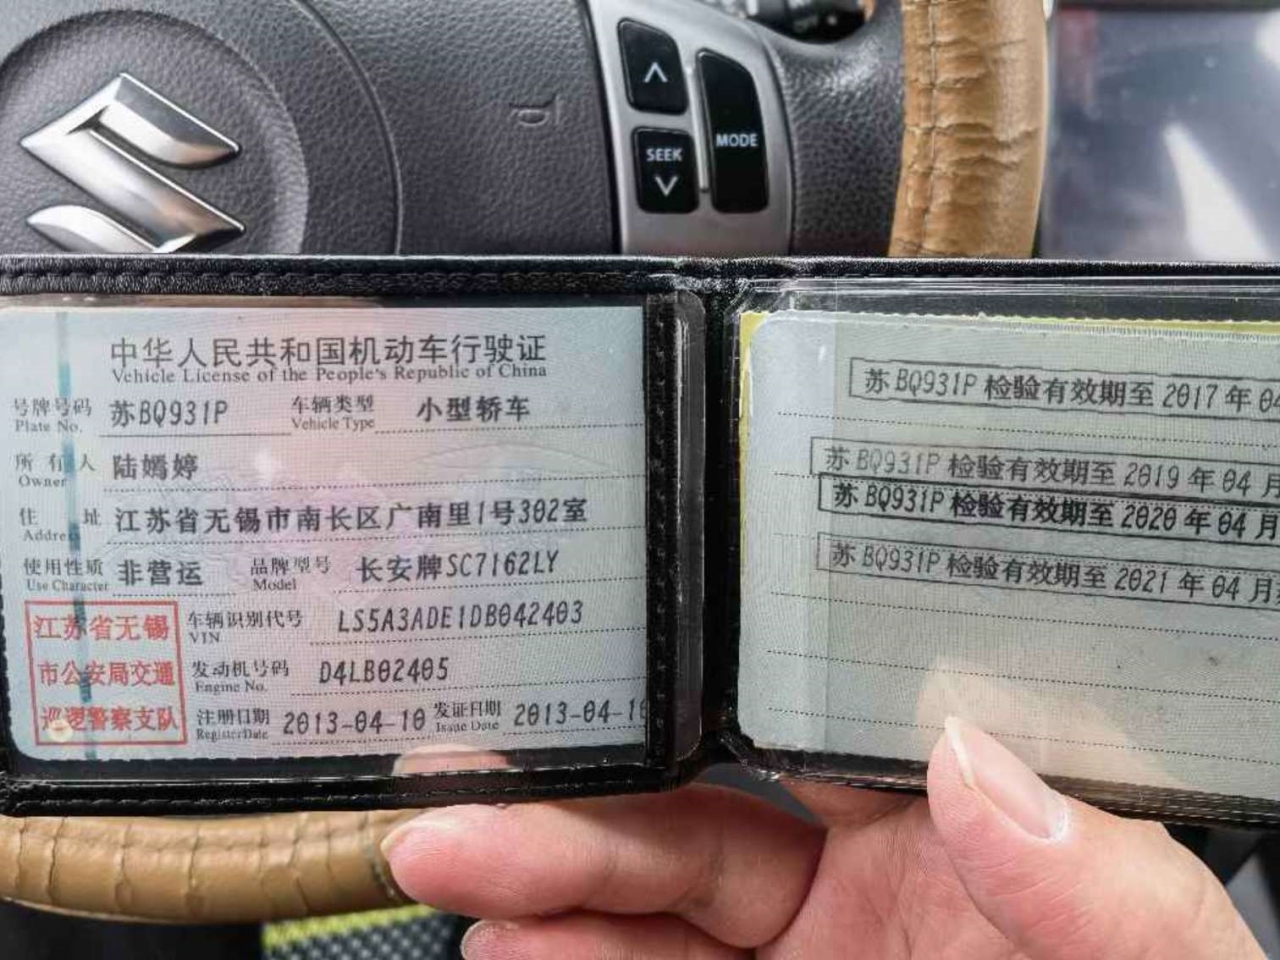 SEEK
MODE
中华人民共和国机动车行驶证
Vehicle License of the People's Republic of China
号牌号码 苏BQ931P 车辆类型 小型轿车
Plate No. Vehicle Type
所有人 陆嫣婷
Owner
住址 江苏省无锡市南长区广南里1号302室
Address
使用性质 非营运 品牌型号 长安牌SC7162LY
Use Character Model
车辆识别代号 LS5A3ADE1DB042403
VIN
发动机号码 D4LB02405
Engine No.
注册日期 2013-04-10 发证日期 2013-04-10
Register Date Issue Date
江苏省无锡
市公安局交通
巡逻警察支队
苏BQ931P 检验有效期至 2017 年 04
苏BQ931P 检验有效期至 2019 年 04 月
苏BQ931P 检验有效期至 2020 年 04 月
苏BQ931P 检验有效期至 2021 年 04 月